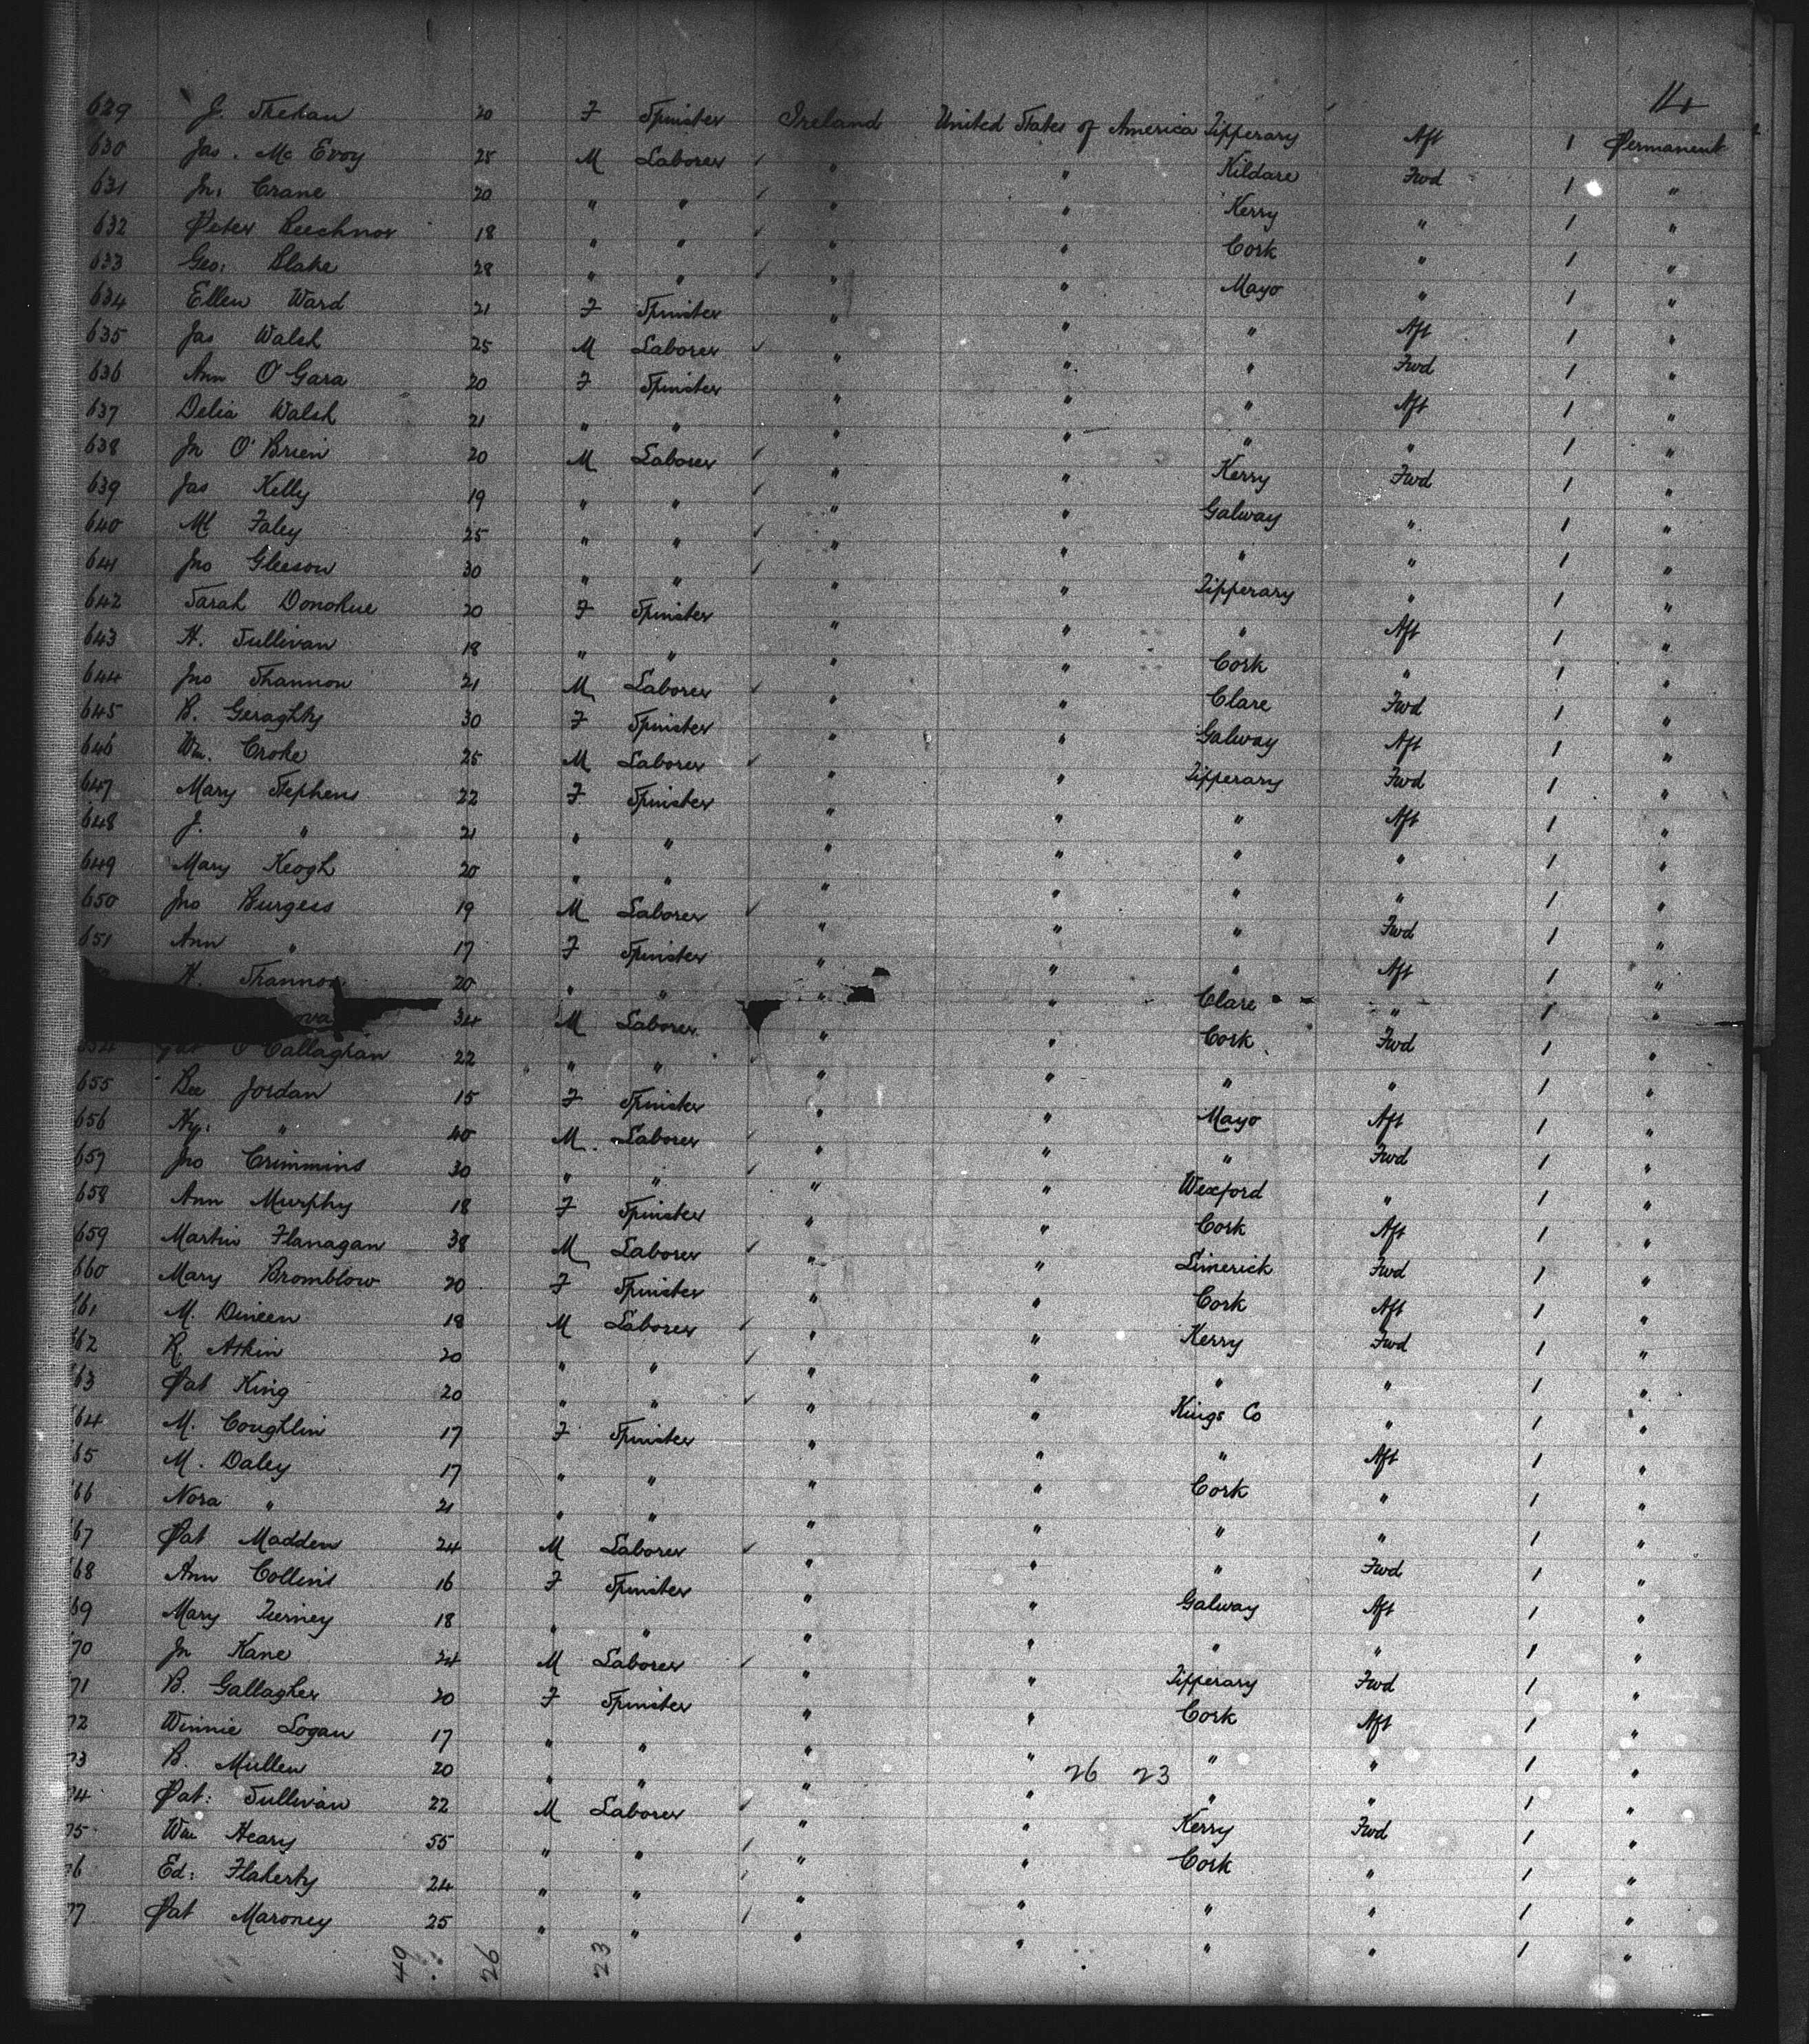 14
629 J. Shehan 20 F Spinster Ireland United States of America Tipperary Aft 1 Permanent
630 Jas. Mc Evoy 25 M Laborer " " Kildare Fwd 1 "
631 Jn: Crane 20 " " " " Kerry " 1 "
632 Peter Beechnor 18 " " " " Cork " 1 "
633 Geo: Blake 28 " " " " Mayo " 1 "
634 Ellen Ward 21 F Spinster " " " Aft 1 "
635 Jas Walsh 25 M Laborer " " " Fwd 1 "
636 Ann O'Gara 20 F Spinster " " " Aft 1 "
637 Delia Walsh 21 " " " " " " 1 "
638 Jn O'Brien 20 M Laborer " " Kerry Fwd 1 "
639 Jas Kelly 19 " " " " Galway " 1 "
640 Ml Faley 25 " " " " " " 1 "
641 Jno Gleeson 30 " " " " Tipperary " 1 "
642 Sarah Donohue 20 F Spinster " " " Aft 1 "
643 H. Sullivan 18 " " " " Cork " 1 "
644 Jno Shannon 21 M Laborer " " Clare Fwd 1 "
645 B. Geraghty 30 F Spinster " " Galway Aft 1 "
646 Wm. Croke 25 M Laborer " " Tipperary Fwd 1 "
647 Mary Stephens 22 F Spinster " " " Aft 1 "
648 J. " 21 " " " " " " 1 "
649 Mary Keogh 20 " " " " " " 1 "
650 Jno Burgess 19 M Laborer " " " Fwd 1 "
651 Ann " 17 F Spinster " " " Aft 1 "
H. Shannon 20 " " " " Clare " 1 "
34 M Laborer " " Cork Fwd 1 "
654 Pat O'Callaghan 22 " " " " " " 1 "
655 Bee Jordan 15 F Spinster " " Mayo Aft 1 "
656 Hy: " 40 M Laborer " " " Fwd 1 "
657 Jno Crimmins 30 " " " " Wexford " 1 "
658 Ann Murphy 18 F Spinster " " Cork Aft 1 "
659 Martin Flanagan 38 M Laborer " " Limerick Fwd 1 "
660 Mary Bromblow 20 F Spinster " " Cork Aft 1 "
61 M. Dineen 18 M Laborer " " Kerry Fwd 1 "
62 R Atkin 20 " " " " " " 1 "
63 Pat King 20 " " " " Kings Co " 1 "
64 M. Coughlin 17 F Spinster " " " Aft 1 "
65 M. Daley 17 " " " " Cork " 1 "
66 Nora " 21 " " " " " " 1 "
67 Pat Madden 24 M Laborer " " " Fwd 1 "
68 Ann Collins 16 F Spinster " " Galway Aft 1 "
69 Mary Tierney 18 " " " " " " 1 "
70 Jn Kane 24 M Laborer " " Tipperary Fwd 1 "
71 B. Gallagher 20 F Spinster " " Cork Aft 1 "
72 Winnie Logan 17 " " " " " " 1 "
73 B. Mullen 20 " " " 26 23 " " " 1 "
74 Pat: Sullivan 22 M Laborer " " Kerry Fwd 1 "
75 Wm Heary 55 " " " " Cork " 1 "
76 Ed: Flaherty 24 " " " " " " 1 "
77 Pat Maroney 25 " " " " " " 1 "
49 26 23